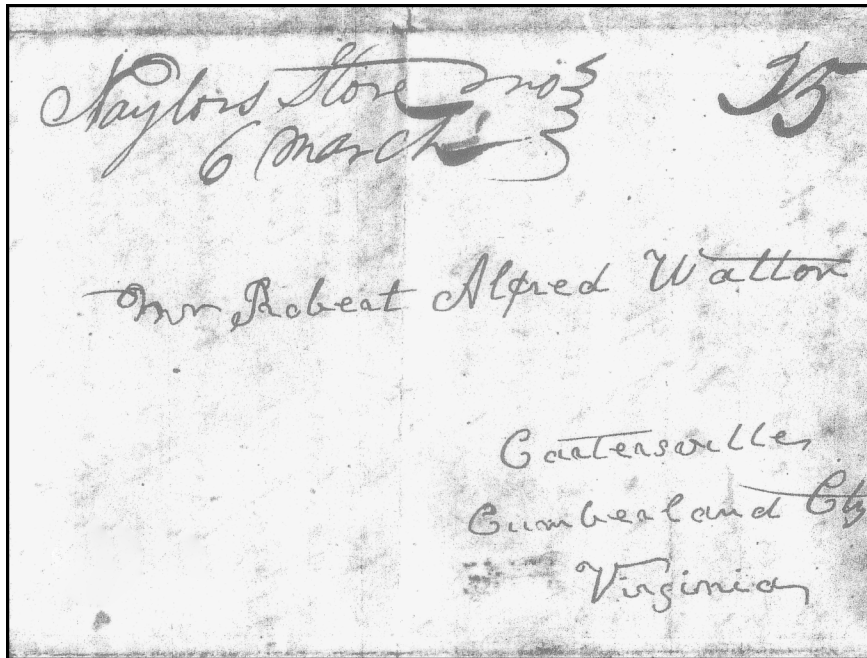 Naylors Store Mo 25
6 March
Mr Robert Alfred Watton
Cartersville
Cumberland Cty
Virginia